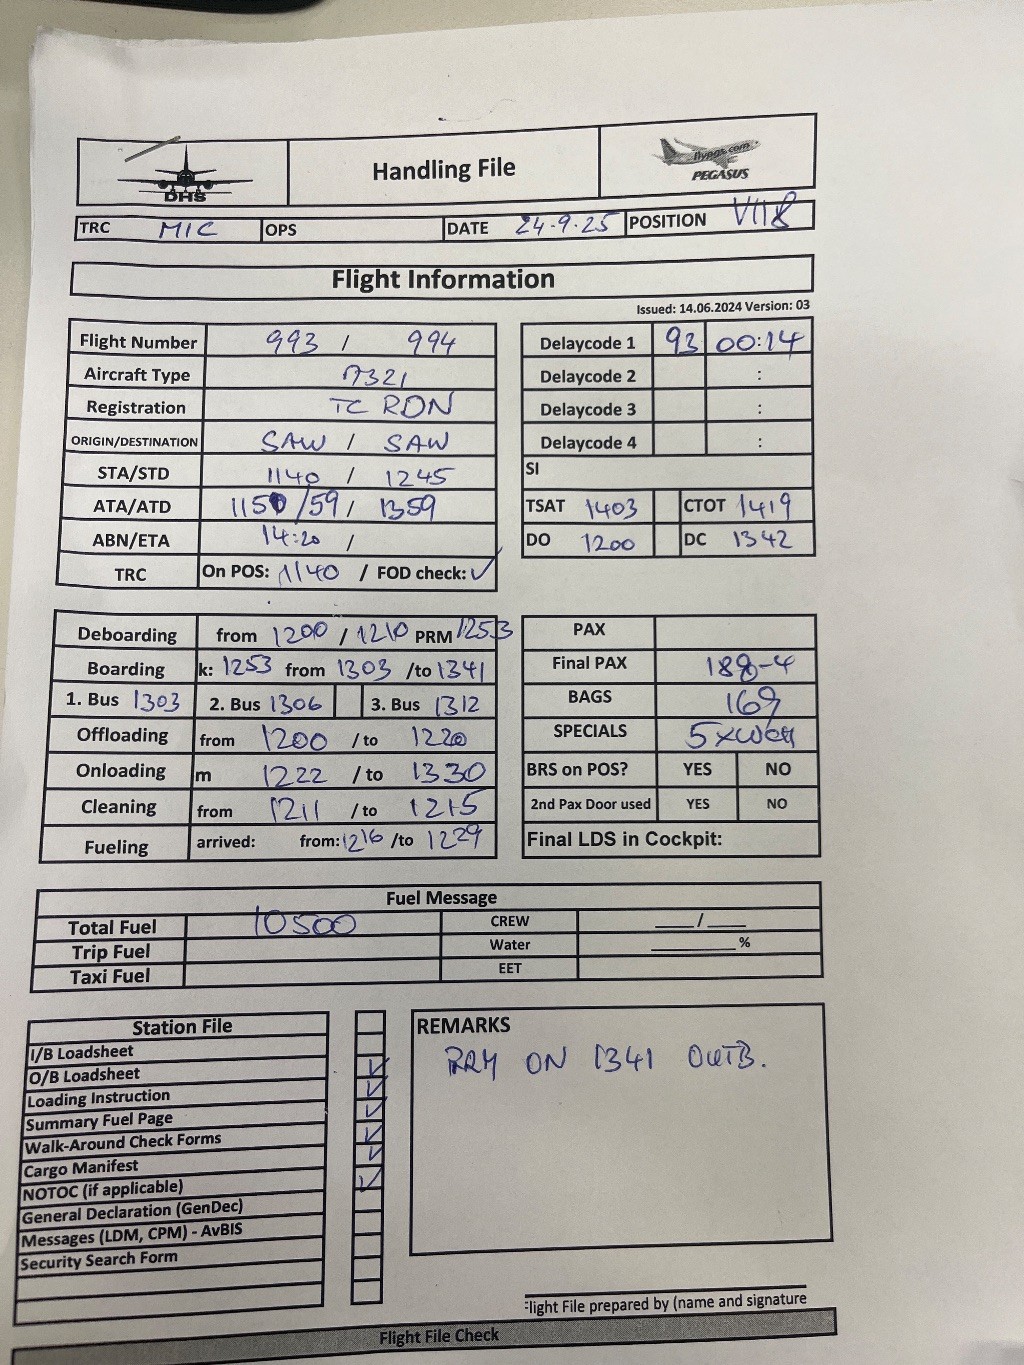 DHS
Handling File
flypgs.com
PEGASUS
TRC MIC OPS DATE 24-9-25 POSITION V118
Flight Information
Issued: 14.06.2024 Version: 03
Flight Number 993 / 994
Aircraft Type A321
Registration TC RDN
ORIGIN/DESTINATION SAW / SAW
STA/STD 1140 / 1245
ATA/ATD 1150/59/ 1359
ABN/ETA 14:20 /
TRC On POS: 1140 / FOD check: ✓
Delaycode 1 93 00:14
Delaycode 2 :
Delaycode 3 :
Delaycode 4 :
SI
TSAT 1403 CTOT 1419
DO 1200 DC 1342
Deboarding from 1200 / 1210 PRM 1253
Boarding k: 1253 from 1303 /to 1341
1. Bus 1303 2. Bus 1306 3. Bus 1312
Offloading from 1200 /to 1220
Onloading m 1222 /to 1330
Cleaning from 1211 /to 1215
Fueling arrived: from: 1216 /to 1229
PAX
Final PAX 188-4
BAGS 169
SPECIALS
BRS on POS? YES NO
2nd Pax Door used YES NO
Final LDS in Cockpit:
Fuel Message
Total Fuel 10500 CREW ___/___
Trip Fuel Water ______%
Taxi Fuel EET
Station File
I/B Loadsheet
O/B Loadsheet
Loading Instruction
Summary Fuel Page
Walk-Around Check Forms
Cargo Manifest
NOTOC (if applicable)
General Declaration (GenDec)
Messages (LDM, CPM) - AvBIS
Security Search Form
REMARKS
ON 1341 OUTB.
Flight File prepared by (name and signature
Flight File Check